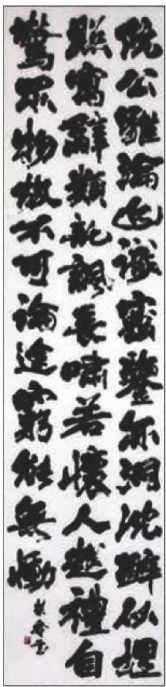 阮公雖淪迹識密鑒亦洞沈醉似埋
照寓辭類託諷長嘯若懷人越禮自
驚眾物故不可論途窮能無慟